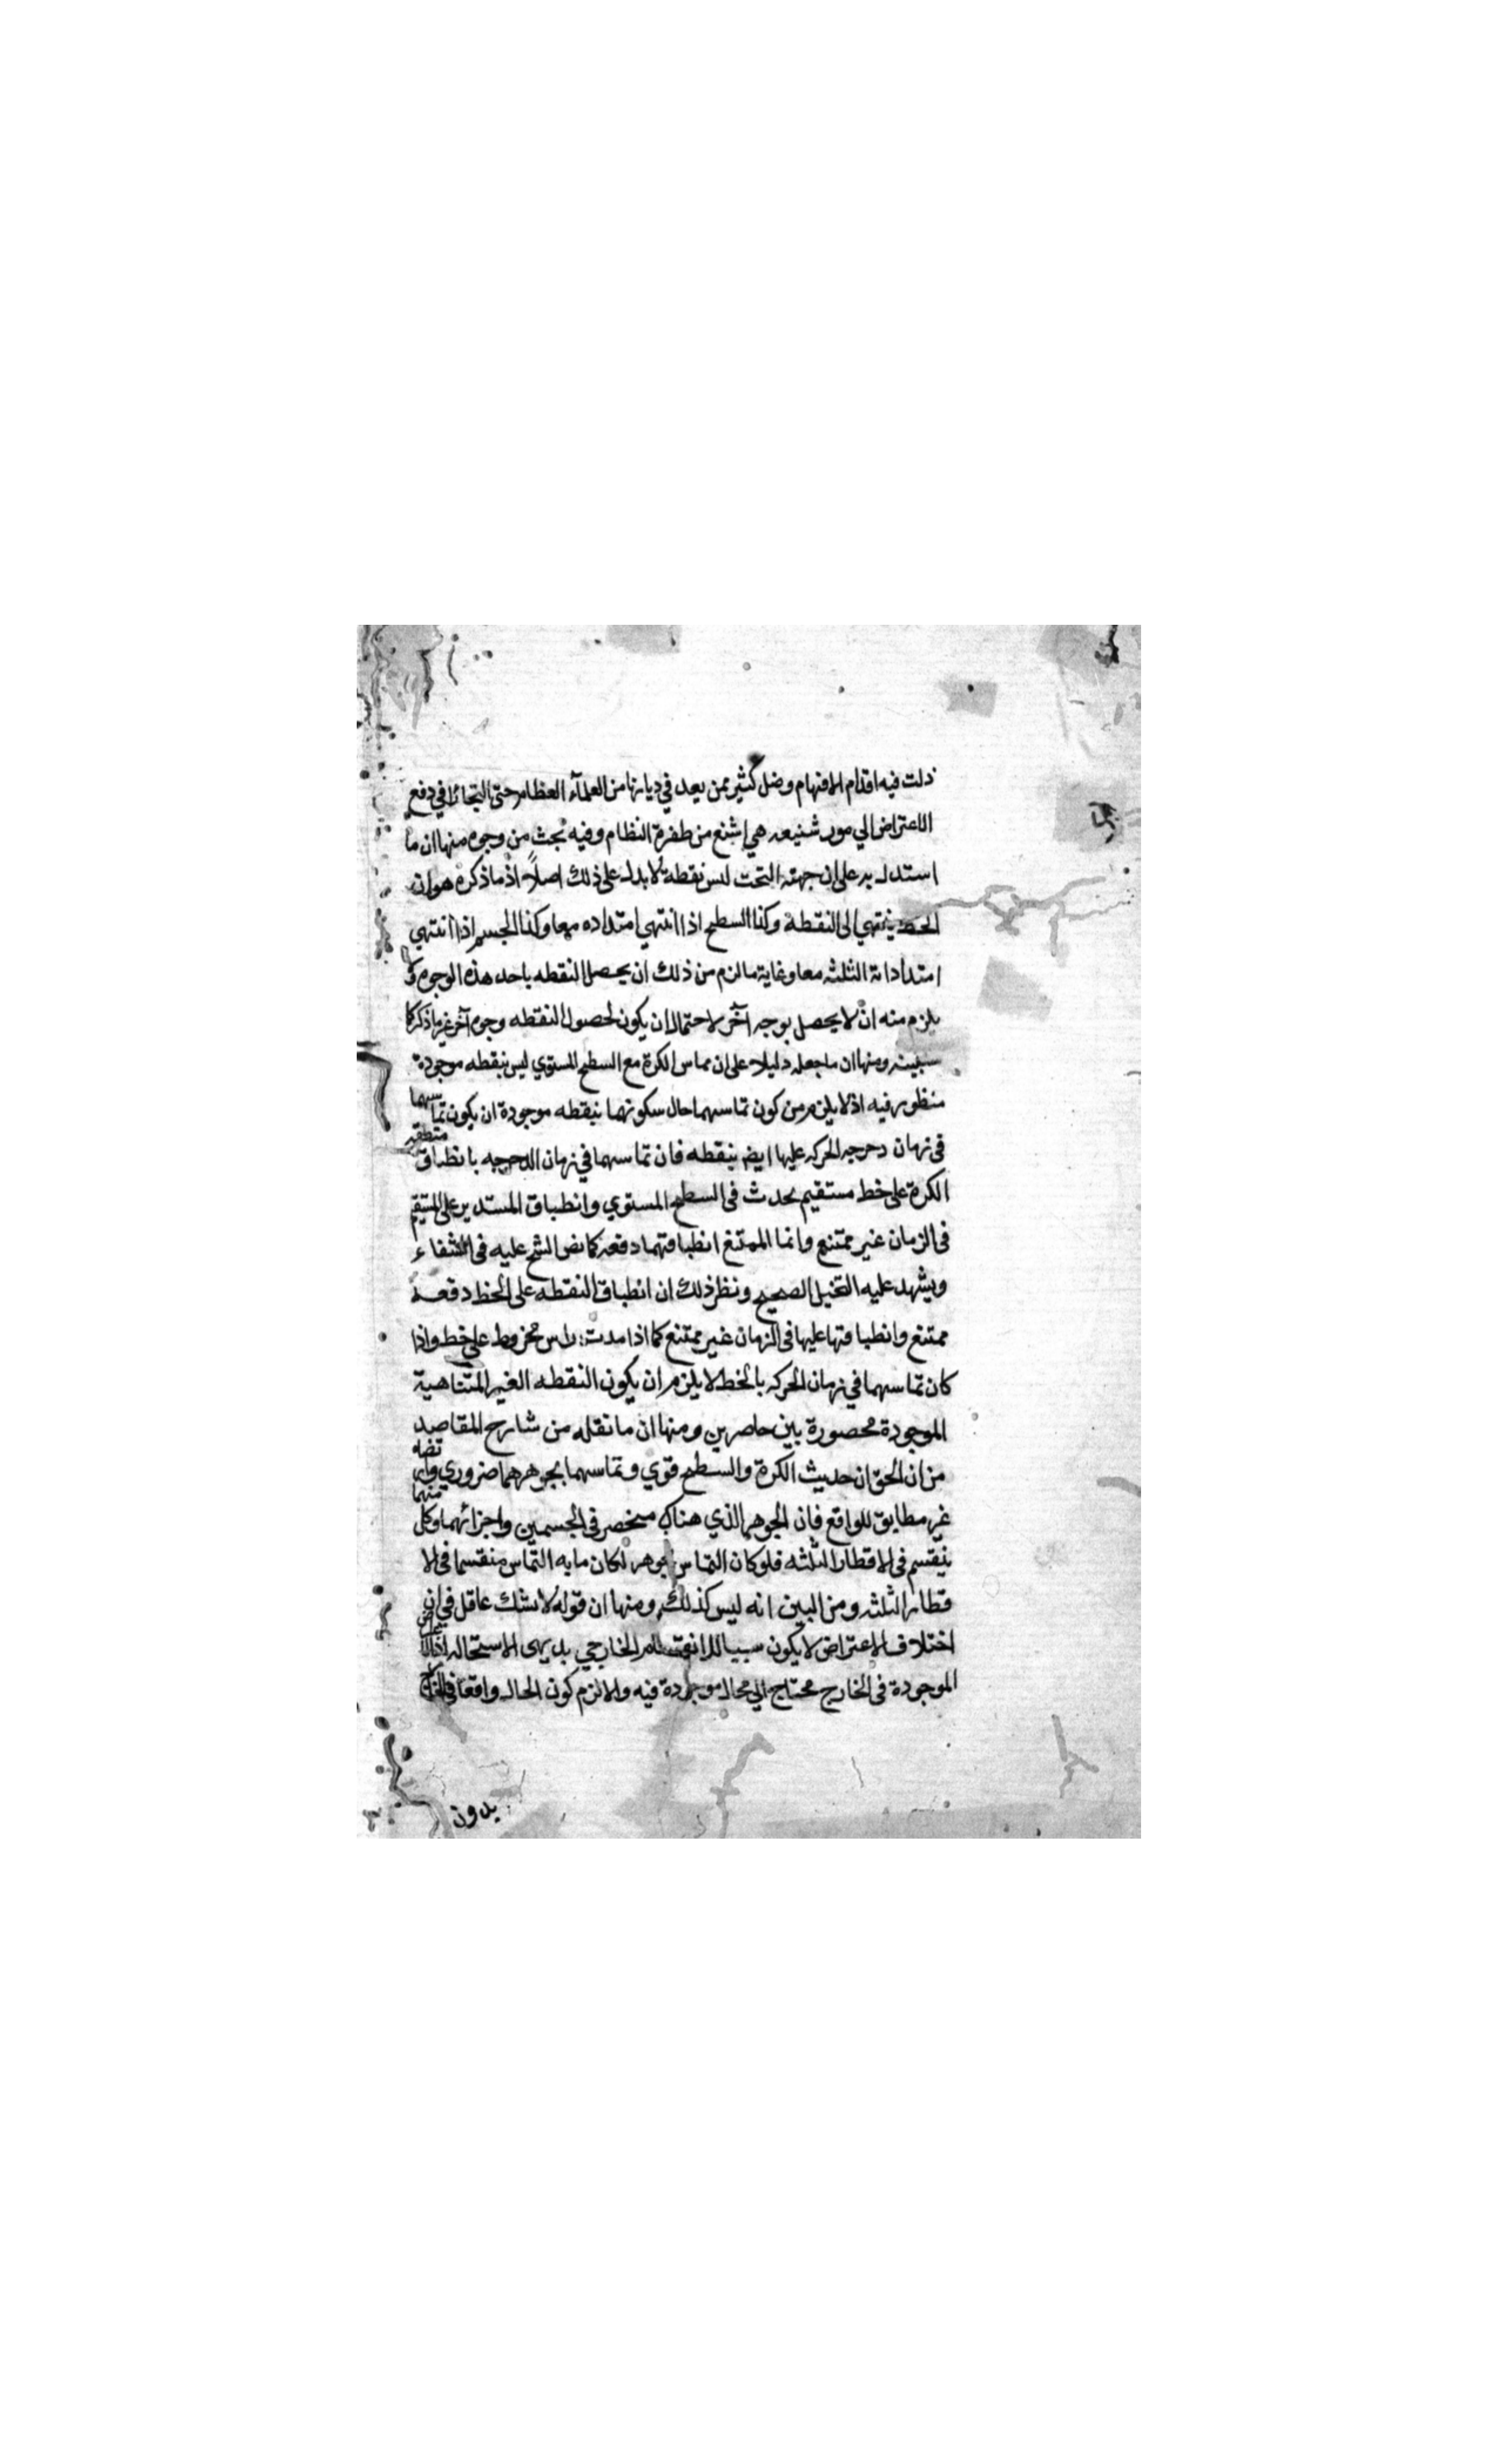 ذلت فيه اقدام الافهام وضل كثير ممن يعد في ديارنا من العلمآء العظام حتى التجائا في دفع
الاعتراض الي مور شنيعه هي اشنع من طفرة النظام وفيه بحث من وجوه منها ان ما
استدل به على ان جهته التحت ليس نقطة لا يدل على ذلك اصلاً اذ ما ذكره هو ان
الخط ينتهي الى النقطة وكذا السطح اذا انتهي امتداده معا وكذا الجسم اذا انتهي
امتداداته الثلثه معا وغاية ما لزم من ذلك ان يحصل النقطه باحد هذه الوجوه ولا
يلزم منه ان لا يحصل بوجه آخر لاحتمال ان يكون لحصول النقطه وجوه آخر غير ما ذكر كما
سنبينه ومنها ان ما جعله دليلا على ان مماس الكرة مع السطح المستوي ليس بنقطه موجودة
منظور فيه اذ لا يلزم من كون تماسهما حال سكونهما بنقطه موجودة ان يكون تماسهما
في زمان دحرجه الحركه عليها ايضا بنقطه فان تماسهما في زمان الدحرجه بانطباق منطقه
الكرة على خط مستقيم يحدث في السطح المستوي وانطباق المستدير على المستقيم
في الزمان غير ممتنع وانما الممتنع انطباقهما دفعه كما نص الشيخ عليه في الشفاء
ويشهد عليه التخيل الصحيح ونظر ذلك ان انطباق النقطه على الخط دفعة
ممتنع وانطباقها عليها في الزمان غير ممتنع كما اذا مدت راس مخروط على خط واذا
كان تماسهما في زمان الحركه بالخط لا يلزم ان يكون النقطه الغير المتناهية
الموجودة محصورة بين حاصرين ومنها ان ما نقله من شارح المقاصد
من ان الحق ان حديث الكرة والسطح قوي وتماسهما بجوهرهما ضروري وارتضاه
غير مطابق للواقع فان الجوهر الذي هناك منحصر في الجسمين واجزائهما وكل منهما
ينقسم في الاقطار الثلثه فلو كان التماس بجوهر لكان ما به التماس منقسما في الا
قطار الثلثه ومن البين انه ليس كذلك ومنها ان قوله لا شك عاقل في ان
اختلاف الاعتراض لا يكون سببا للانقسام الخارجي بديهي الاستحاله اذ
الموجودة في الخارج محتاج الي محال موجودة فيه والا لزم كون الحال واقعا في الخارج
بدون